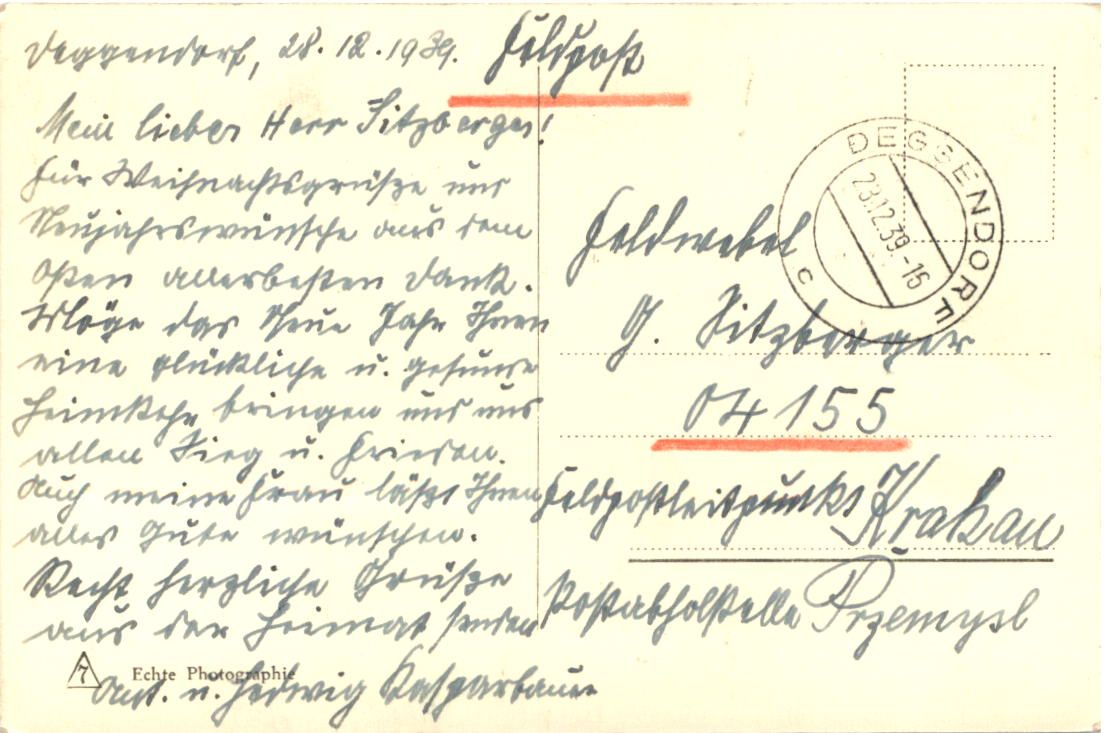 Deggendorf, 28.12.1939.
Feldpost
Mein lieber Herr Sitzberger!
Für Weihnachtsgrüße und
Neujahrswünsche aus dem
Osten allerbesten Dank.
Möge das Neue Jahr Ihnen
eine glückliche u. gesunde
Heimkehr bringen und uns
allen Sieg u. Frieden.
Auch meine Frau läßt Ihnen
alles Gute wünschen.
Recht herzliche Grüße
aus der Heimat senden
Ant. u. Hedwig Kasparbauer
7
Echte Photographie
DEGGENDORF
23.12.39.-16
c
Feldwebel
G. Sitzberger
04155
Feldpostleitpunkt Krakau
Postabholstelle Przemysl